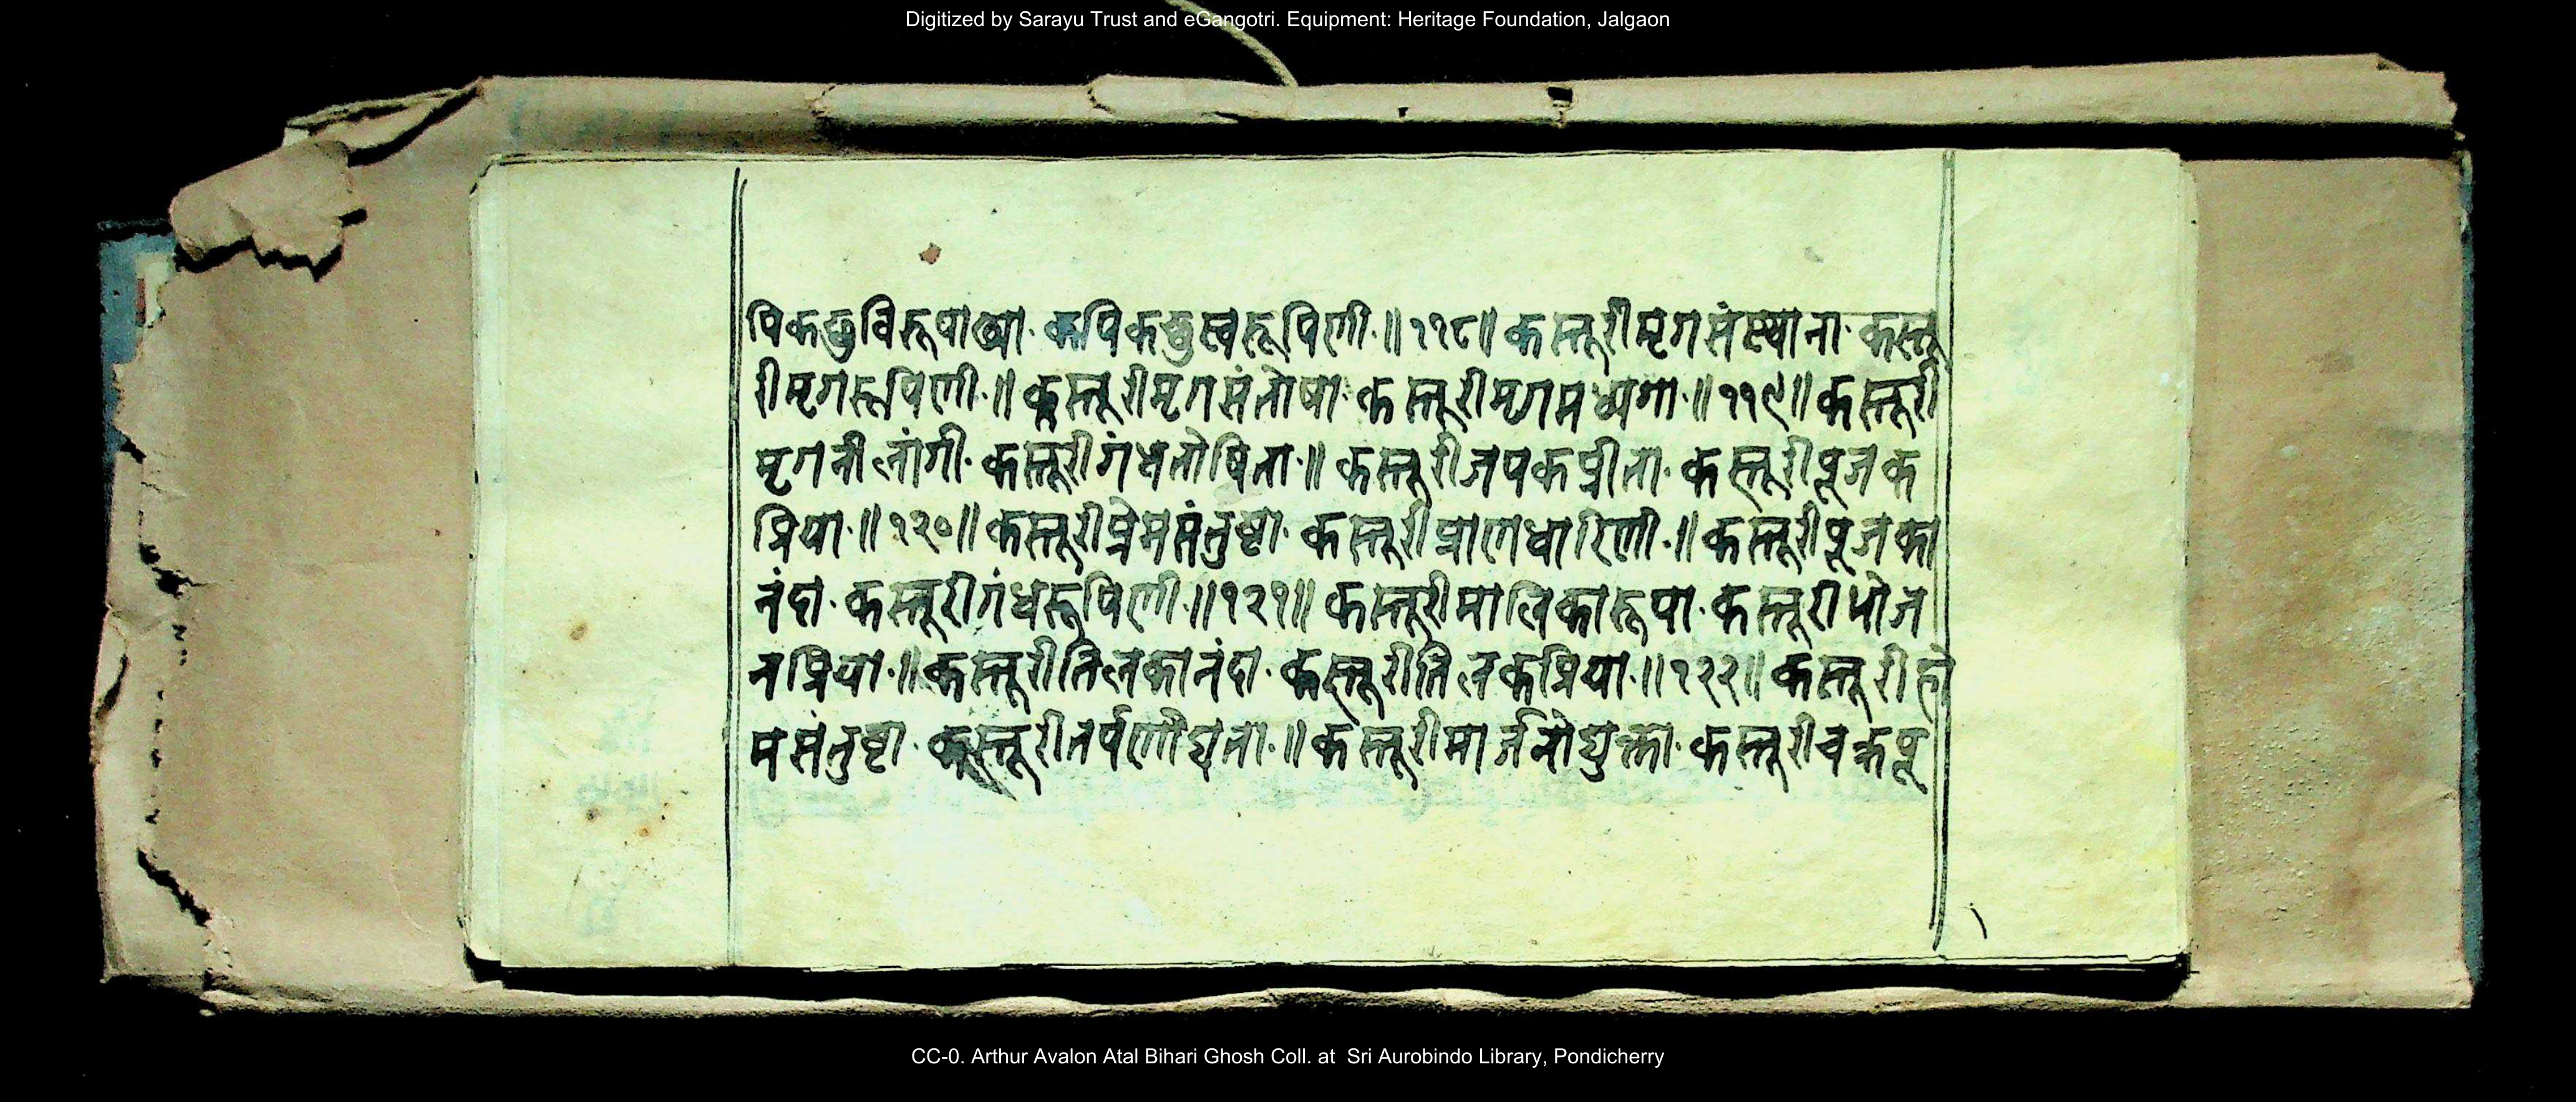 Digitized by Sarayu Trust and eGangotri. Equipment: Heritage Foundation, Jalgaon
पिकछुविरूपाख्या· कपिकछुस्वरूपिणी·॥११८॥ कस्तूरीमृगसंस्थाना· कस्तू
रीमृगरूपिणी·॥ कस्तूरीमृगसंतोषा· कस्तूरीमृगमध्यगा·॥११९॥ कस्तूरी
मृगनीलांगी· कस्तूरीगंधतोषिता·॥ कस्तूरीजपकप्रीता· कस्तूरीपूजक
प्रिया·॥१२०॥ कस्तूरीप्रेमसंतुष्टा· कस्तूरीप्राणधारिणी·॥ कस्तूरीपूजका
नंदा· कस्तूरीगंधरूपिणी·॥१२१॥ कस्तूरीमालिकारूपा· कस्तूरीभोज
नप्रिया·॥ कस्तूरीतिलकानंदा· कस्तूरीतिलकप्रिया·॥१२२॥ कस्तूरीहो
मसंतुष्टा· कस्तूरीतर्पणोद्यता·॥ कस्तूरीमार्जनोद्युक्ता· कस्तूरीचक्रपू
CC-0. Arthur Avalon Atal Bihari Ghosh Coll. at Sri Aurobindo Library, Pondicherry